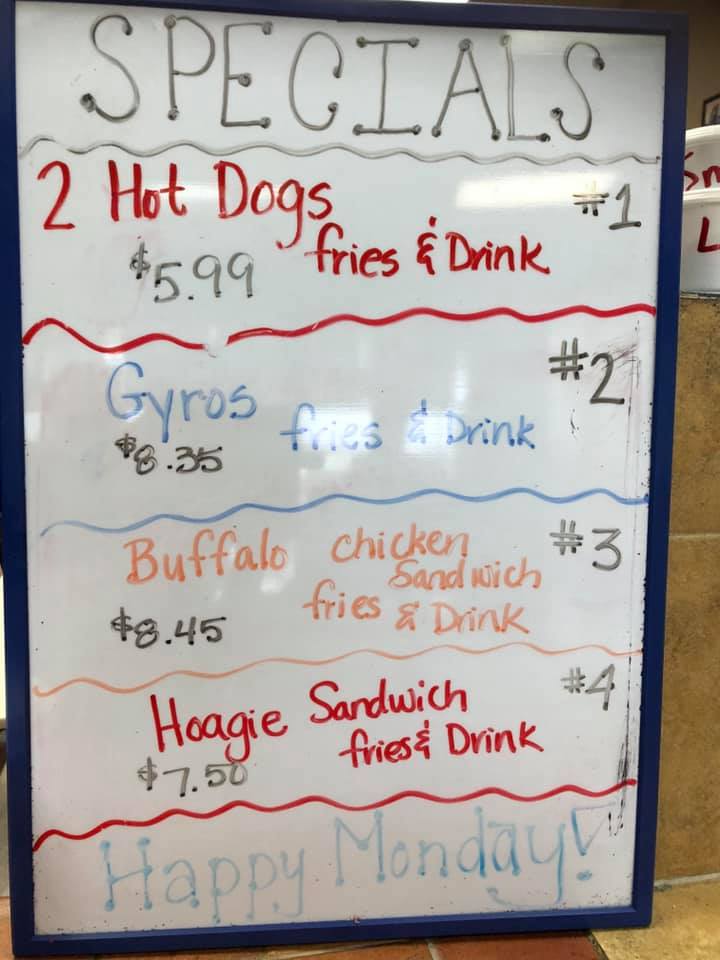 SPECIALS
2 Hot Dogs #1
$5.99 fries & Drink
Gyros #2
$8.35 fries & Drink
Buffalo chicken #3
Sandwich
$8.45 fries & Drink
Hoagie Sandwich #4
$7.50 fries & Drink
Happy Monday!